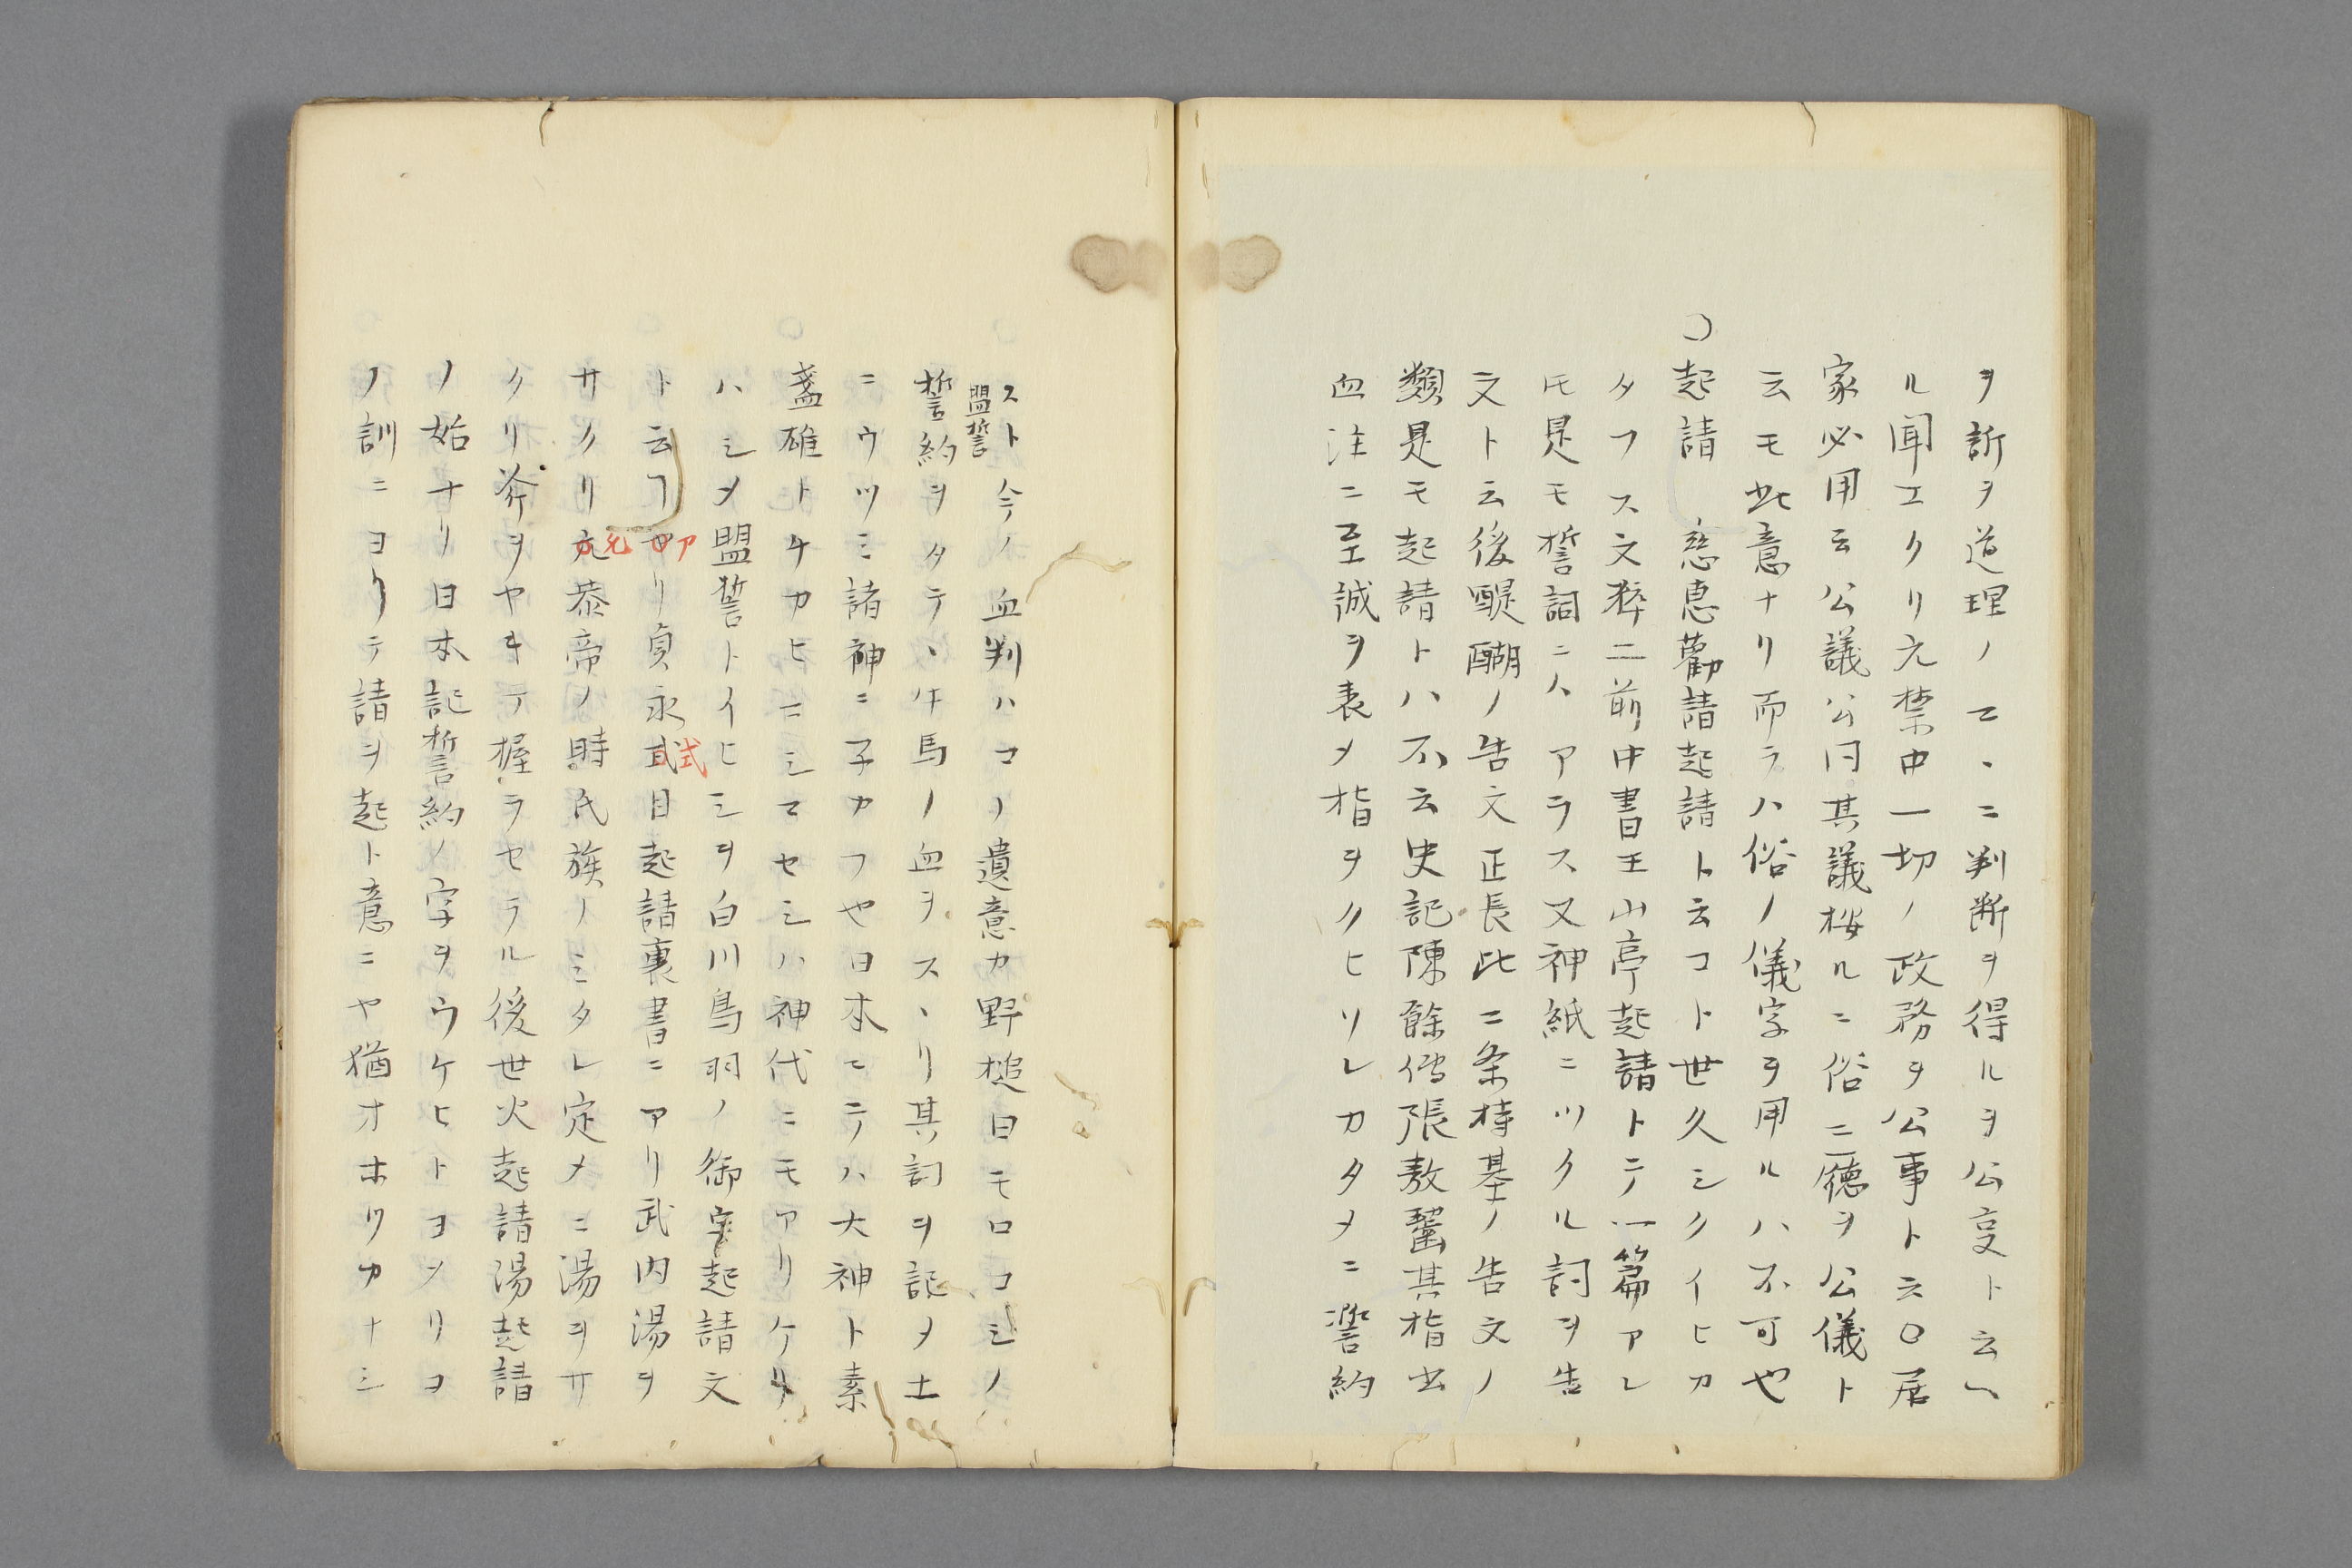 ヲ訴ヲ道理ノマヽニ判断ヲ得ルヲ公叓ト云ヘ
ル聞エクリ元禁中一切ノ政務ヲ公事ト云〇居
家必用云公議公同其議桉ルニ俗ニ徳ヲ公儀ト
云モ此意ナリ而ラハ俗ノ儀字ヲ用ルハ不可也
〇起請 慈恵勸請起請ト云コト世久シクイヒカ
タフス文粹ニ前中書王山亭起請トテ一篇アレ
𪜈是モ誓詞ニハアラス又神紙ニツクル詞ヲ告
文ト云後醍醐ノ告文正長比二条持基ノ告文ノ
類是モ起請トハ不云史記陳餘傳張敖齧其指出
血注ニ至誠ヲ表メ指ヲクヒソレカタメニ誓約
スト今ノ血判ハコノ遺意カ野槌曰モロコシノ
盟誓
誓約ヲタテヽ牛馬ノ血ヲスヽリ其詞ヲ記メ土
ニウツミ諸神ニ子カフや日本ニテハ大神ト素
盞雄トチカヒニシマセシハ神代ニモアリケリ
ハシメ盟誓トイヒシヲ白川鳥羽ノ御宇起請文
ト云フヤリ貞永貳目起請裏書ニアリ武内湯ヲ
ア
式
サクリ亢恭帝ノ時氏族ノミタレ定メニ湯ヲサ
允
クリ斧ヲヤキテ握ラセラル後世火起請湯起請
ノ始ナリ日本記誓約ノ字ヲウケヒトヨメリヨ
ノ訓ニヨリテ請ヲ起ト意ニヤ猶オホツカナシ